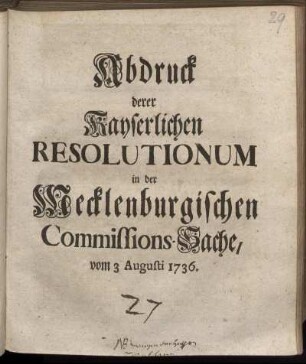 29
Abdruck
derer
Kayserlichen
RESOLUTIONUM
in der
Mecklenburgischen
Commissions-Sache,
vom 3 Augusti 1736.
27